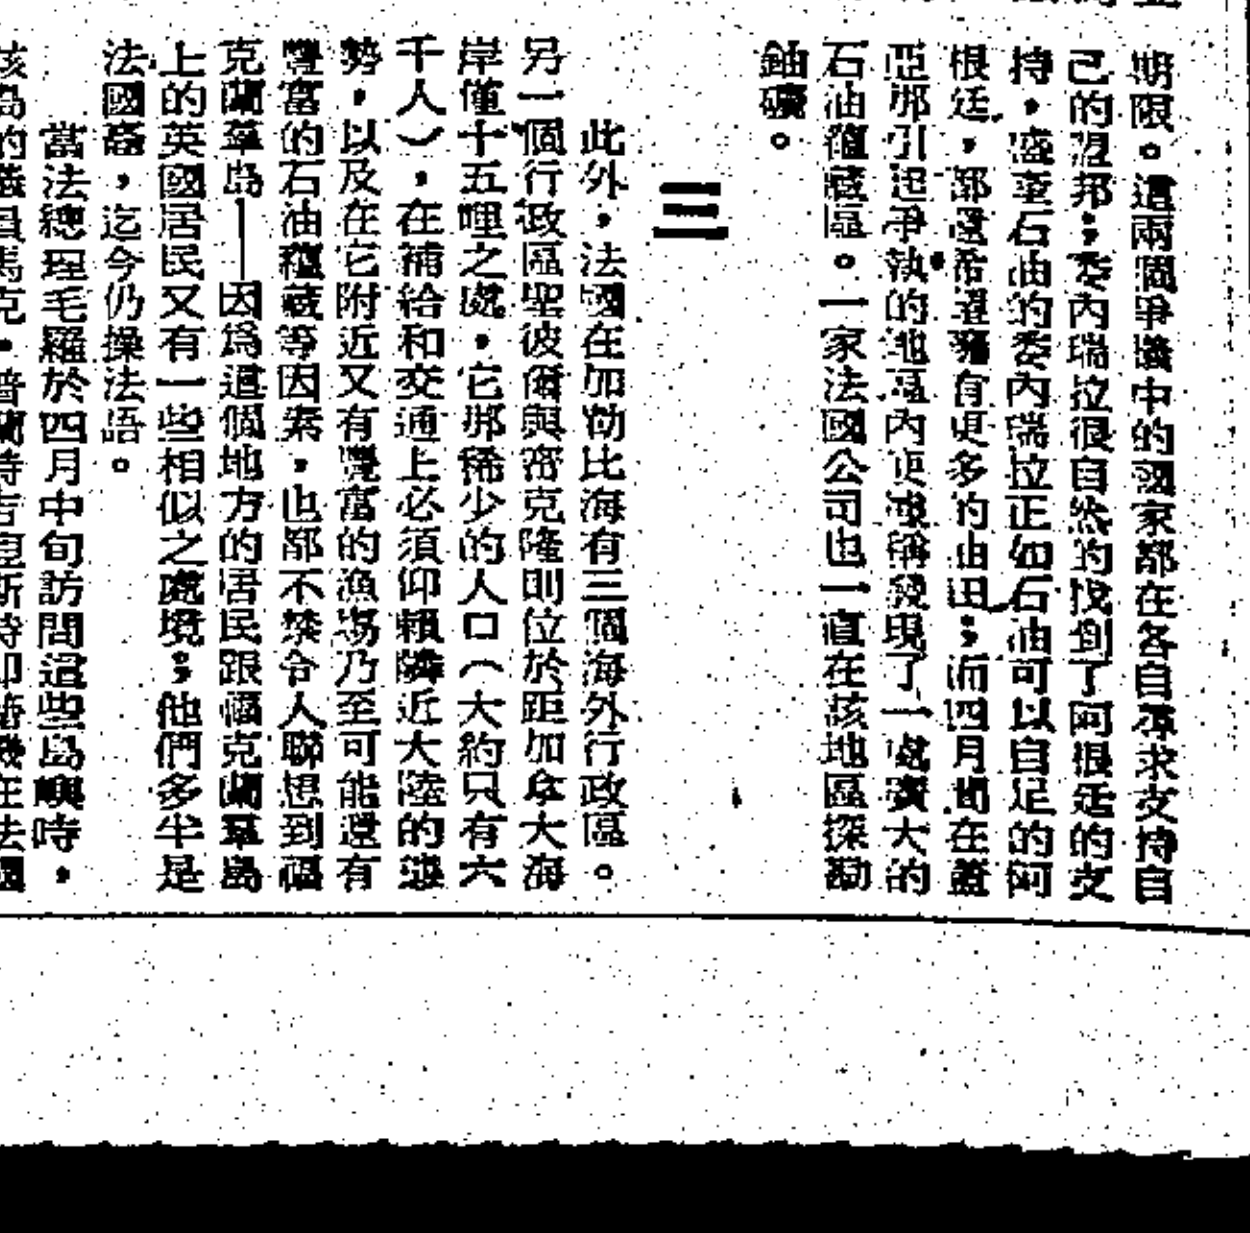 期限。這兩個爭議中的國家都在各自尋求支持自
己的盟邦;委內瑞拉很自然的找到了阿根廷的支
持,盛產石油的委內瑞拉正如石油可以自足的阿
根廷,都還希望擁有更多的油田;而四月間在蓋
亞那引起爭執的地區內更被稱發現了一處廣大的
石油蘊藏區。一家法國公司也一直在該地區探勘
鈾礦。
三
此外,法國在加勒比海有三個海外行政區。
另一個行政區聖彼爾與密克隆則位於距加拿大海
岸僅十五哩之處,它那稀少的人口(大約只有六
千人),在補給和交通上必須仰賴隣近大陸的
勢,以及在它附近又有豐富的漁場乃至可能還有
豐富的石油蘊藏等因素,也都不禁令人聯想到福
克蘭羣島——因為這個地方的居民跟福克蘭羣島
上的英國居民又有一些相似之處境;他們多半是
法國裔,迄今仍操法語。
當法總理毛羅於四月中旬訪問這些島嶼時,
該島的議員馬克·普蘭特